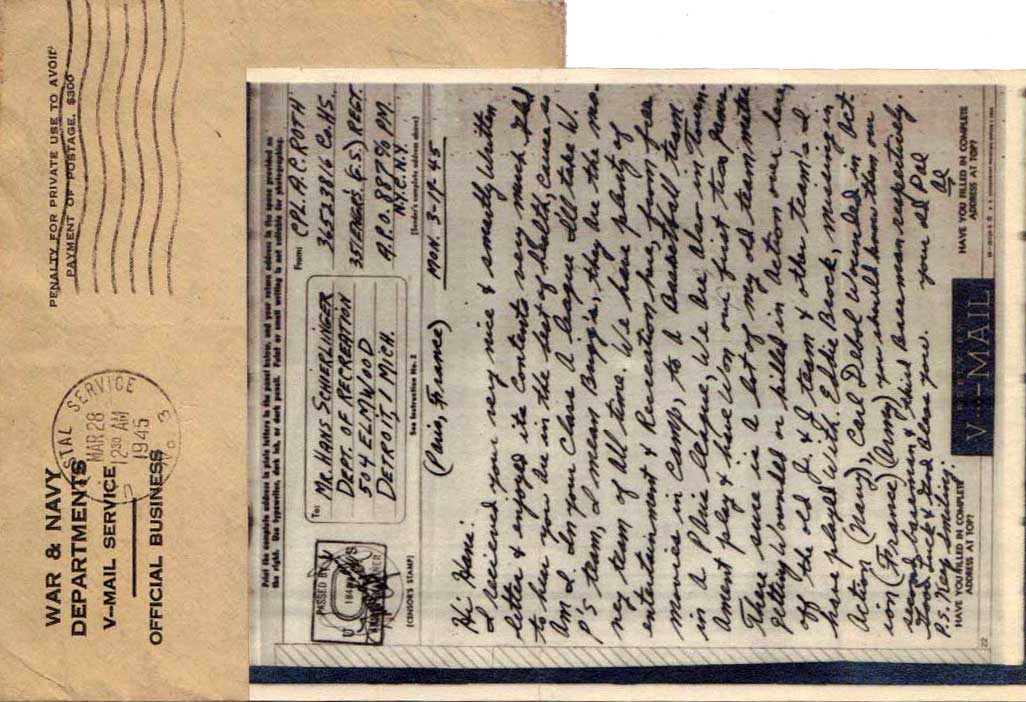 WAR & NAVY
DEPARTMENTS
V-MAIL SERVICE
OFFICIAL BUSINESS
STAL SERVICE
MAR 28
12 30 AM
1945
3
PENALTY FOR PRIVATE USE TO AVOID
PAYMENT OF POSTAGE, $300
Print the complete address in plain letters in the panel below, and your return address in the space provided on
the right. Use typewriter, dark ink, or dark pencil. Faint or small writing is not suitable for photographing.
PASSED BY
ARMY EXAMINER
[CENSOR'S STAMP]
To:
MR. HANS SCHIERLINGER
DEPT. OF RECREATION
504 ELMWOOD
DETROIT, 1 MICH.
See Instruction No. 2
From:
CPL. A.C. ROTH
36523816 Co. HS.
35 ENGR'S (G.S.) REGT
A.P.O. 887 % P.M.
N.Y.C. N.Y.
[Sender's complete address above]
(Paris, France)
MON. 3-19-45
Hi Hans:
I recieved your very nice & smartly written
letter & enjoyed its contents very much. Glad
to hear you are in the best of health, cause so
am I. In your Class A league I'll take W.
P's team, I mean they are the
ney team of all time. We have plenty of
entertainment & Recreation here, from free
movies in Camp, to a Basketball team
in a Paris league, We are also in Tourn-
ament play & have Won our first two games.
There sure is a lot of my old team mates
getting Wounded or killed in Action over here,
off the old J. & J. team & other team's I
have played With. Eddie Brock, missing in
Action (Navy), Carl Debol Wounded in Act
ion (France) (Army) you should know them our
second baseman & third baseman respectively.
Good Luck & God bless you. your old Pal
Al
P.S. Keep smiling.
HAVE YOU FILLED IN COMPLETE
ADDRESS AT TOP?
V-MAIL
HAVE YOU FILLED IN COMPLETE
ADDRESS AT TOP?